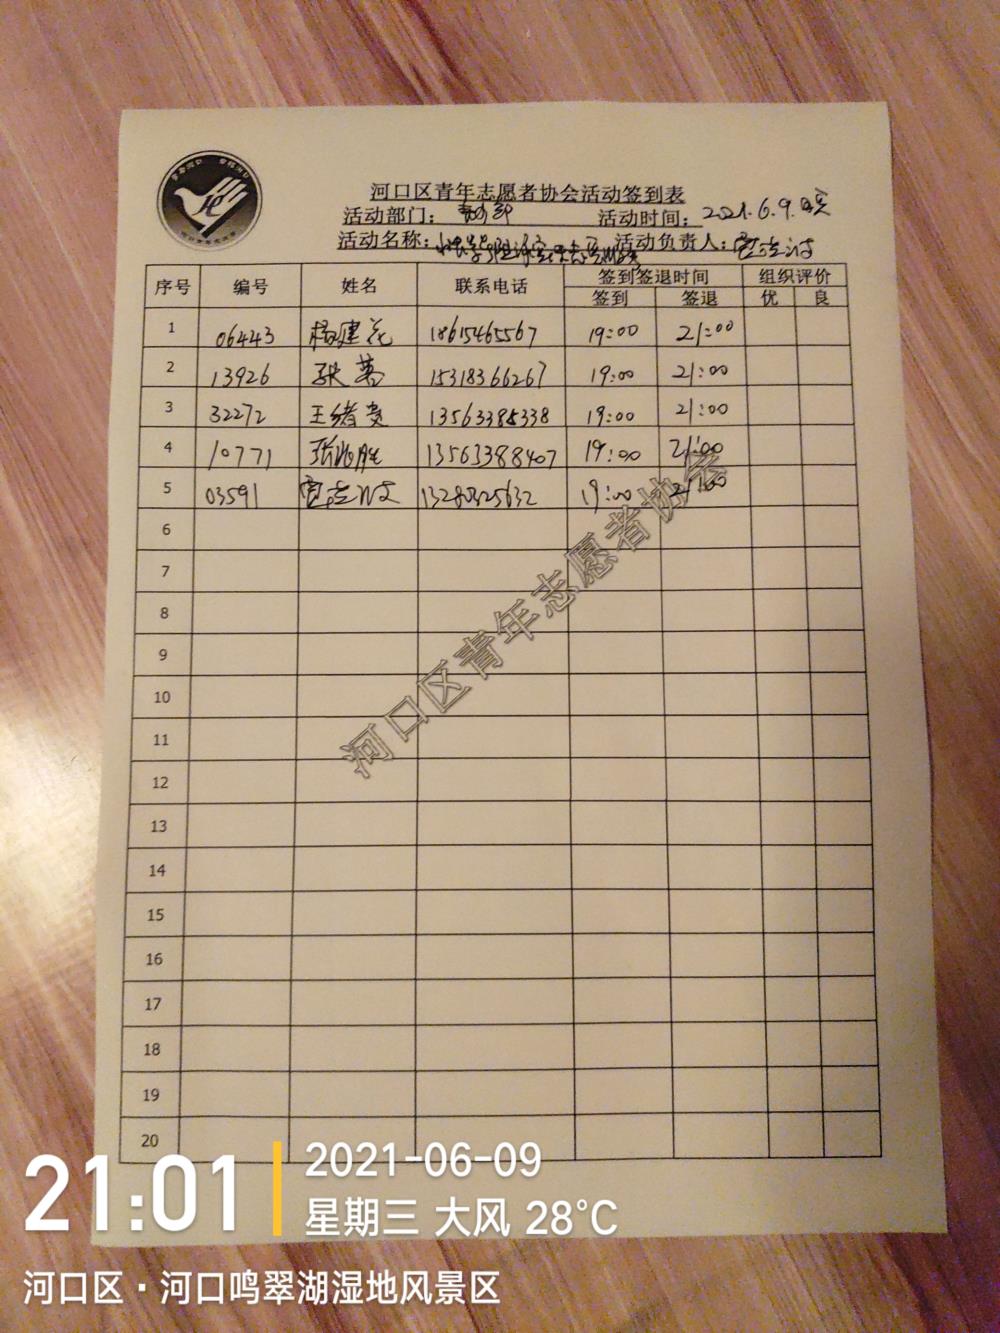 河口区青年志愿者协会活动签到表
活动部门： 活动时间：2021.6.9.晚
活动名称： 活动负责人：
序号 编号 姓名 联系电话 签到签退时间 组织评价
签到 签退 优 良
1 06443 杨建花 18615465567 19:00 21:00
2 13926 15318366267 19:00 21:00
3 32272 王绪贵 13563385338 19:00 21:00
4 10771 张兆胜 13563388407 19:00 21:00
5 03591 19:00 21:00
6
7
8
9
10
11
12
13
14
15
16
17
18
19
20
河口区青年志愿者协会
21:01
2021-06-09
星期三 大风 28°C
河口区·河口鸣翠湖湿地风景区